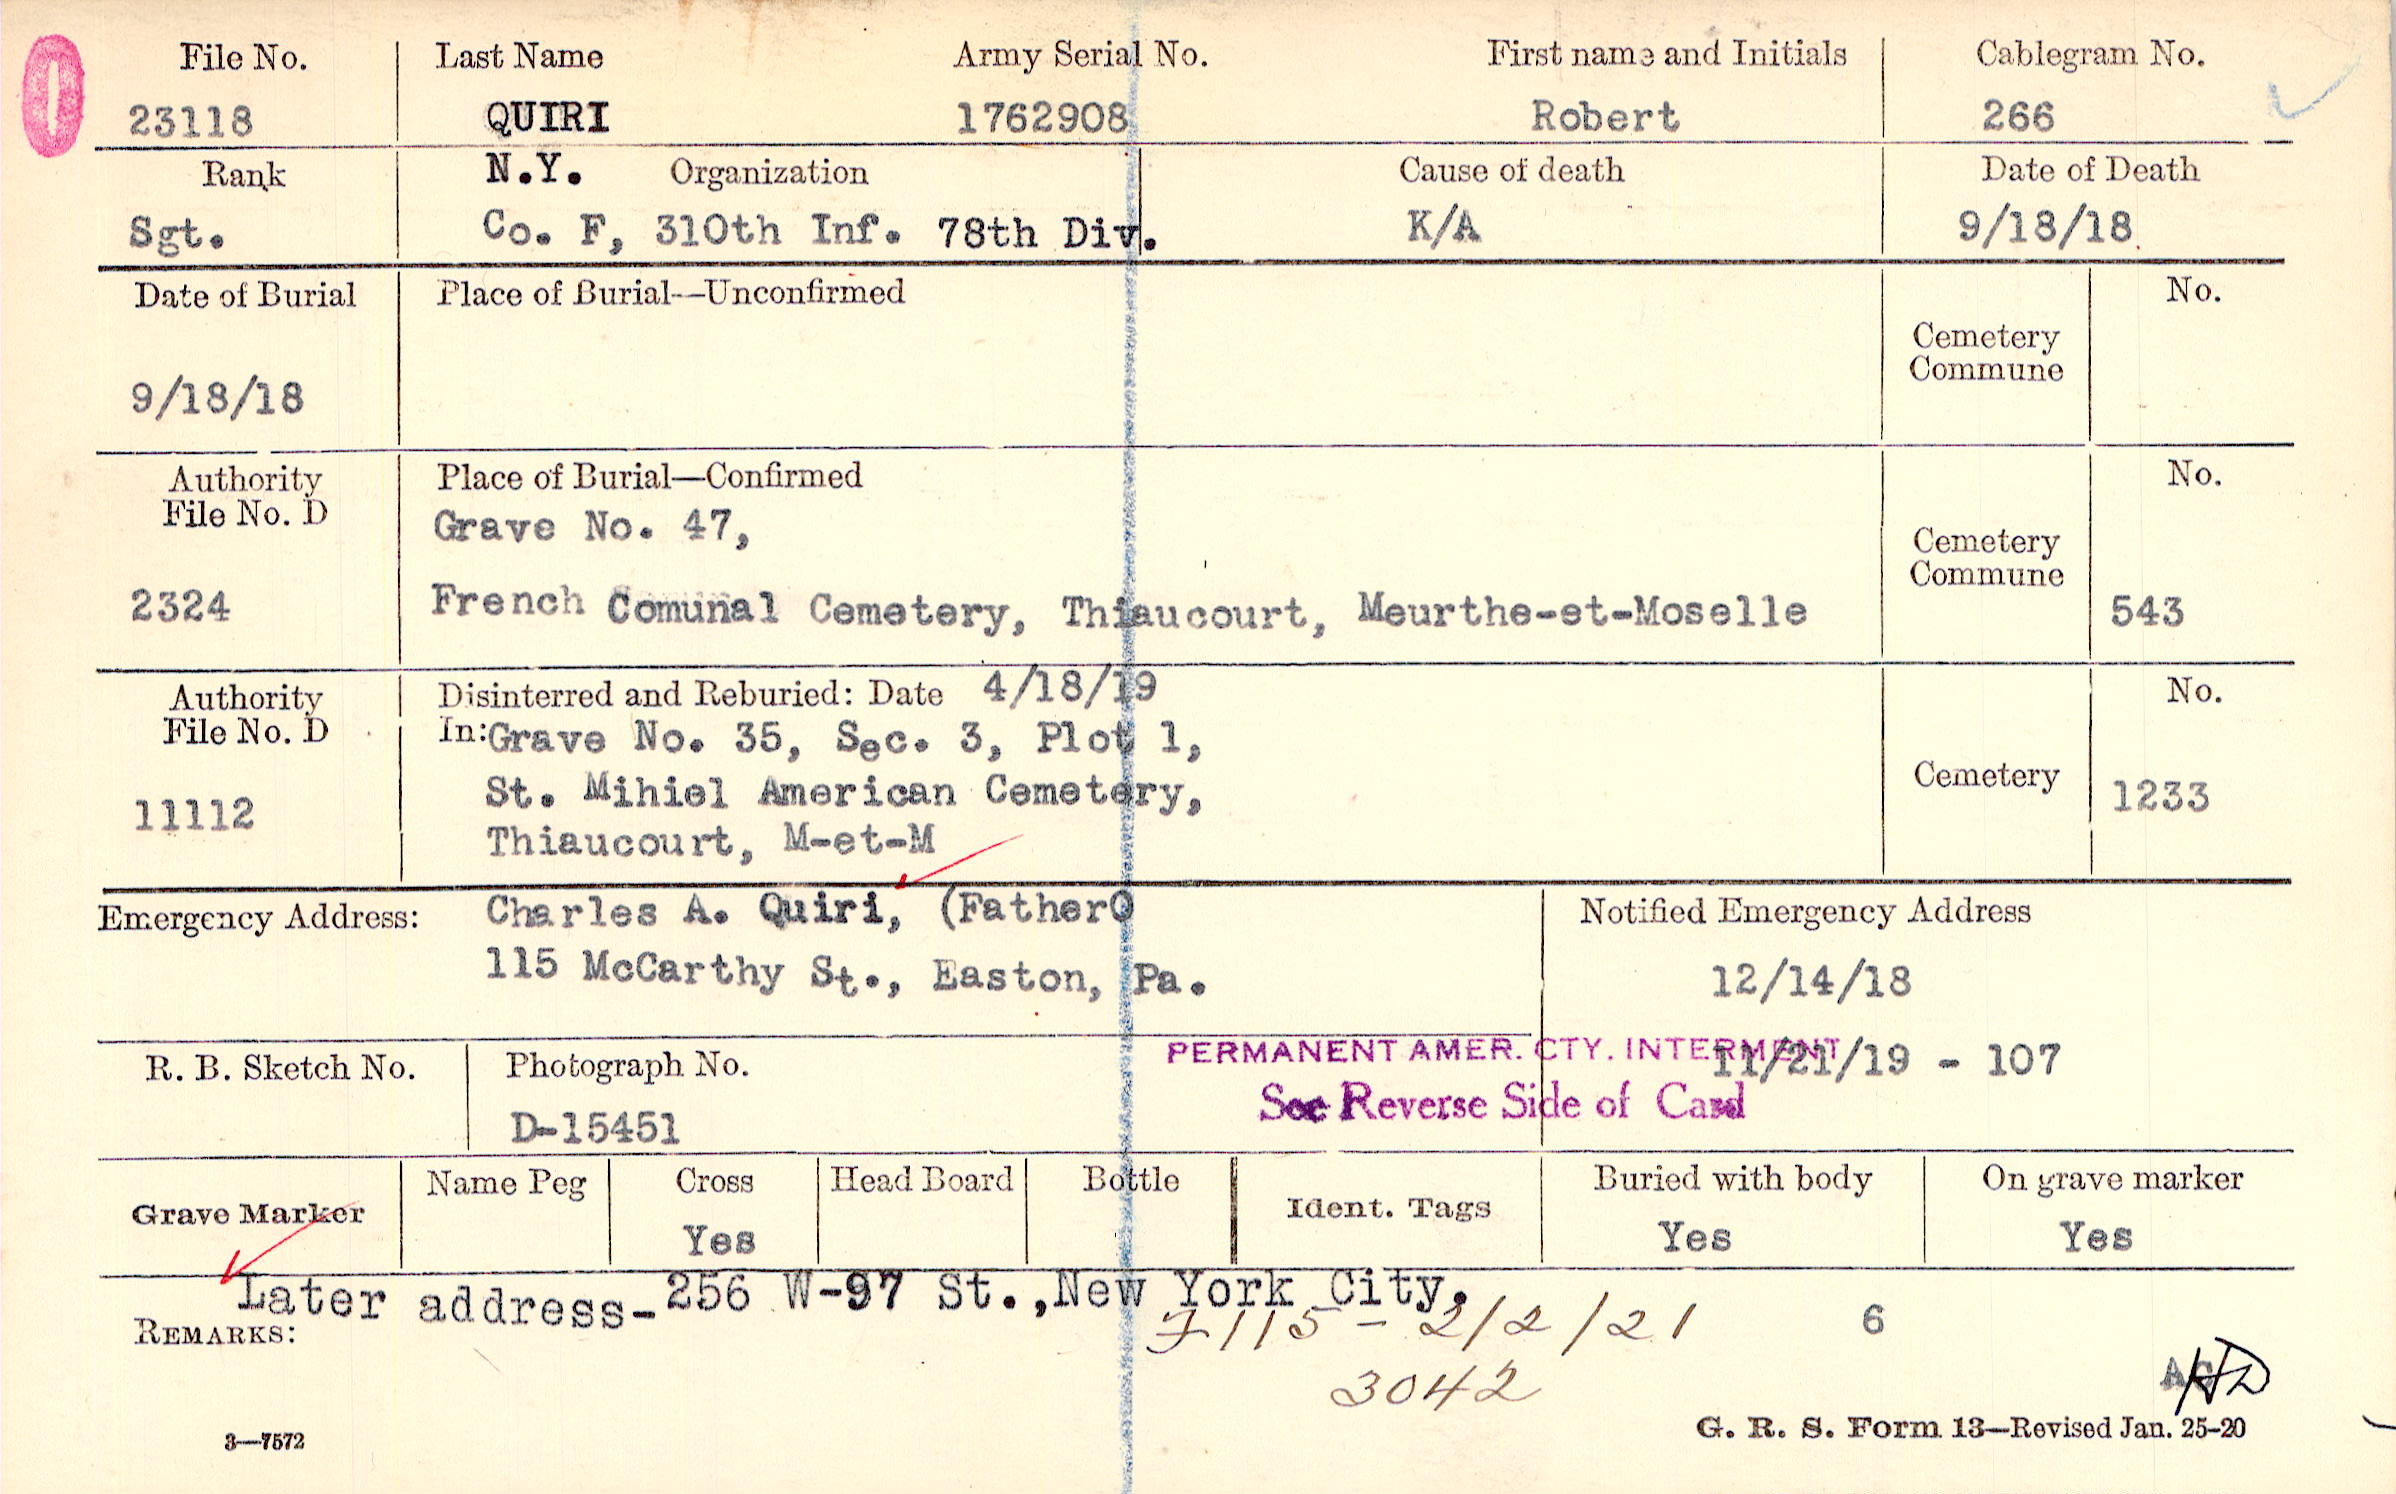 File No. Last Name Army Serial No. First name and Initials Cablegram No.
23118 QUIRI 1762908 Robert 266
Rank N.Y. Organization Cause of death Date of Death
Sgt. Co. F, 310th Inf. 78th Div. K/A 9/18/18
Date of Burial Place of Burial—Unconfirmed No.
Cemetery
Commune
9/18/18
Authority Place of Burial—Confirmed No.
File No. D Grave No. 47,
Cemetery
Commune
2324 French Comunal Cemetery, Thiaucourt, Meurthe-et-Moselle 543
Authority Disinterred and Reburied: Date 4/18/19 No.
File No. D In: Grave No. 35, Sec. 3, Plot 1,
11112 St. Mihiel American Cemetery, Cemetery 1233
Thiaucourt, M-et-M
Emergency Address: Charles A. Quiri, (Father0 Notified Emergency Address
115 McCarthy St., Easton, Pa. 12/14/18
PERMANENT AMER. CTY. INTERMENT 11/21/19 - 107
R. B. Sketch No. Photograph No.
See Reverse Side of Card
D-15451
Grave Marker Name Peg Cross Head Board Bottle Ident. Tags Buried with body On grave marker
Yes Yes Yes
Later address- 256 W-97 St., New York City.
REMARKS: 115 - 2/2/21 6
3042
3—7572 G. R. S. Form 13—Revised Jan. 25-20